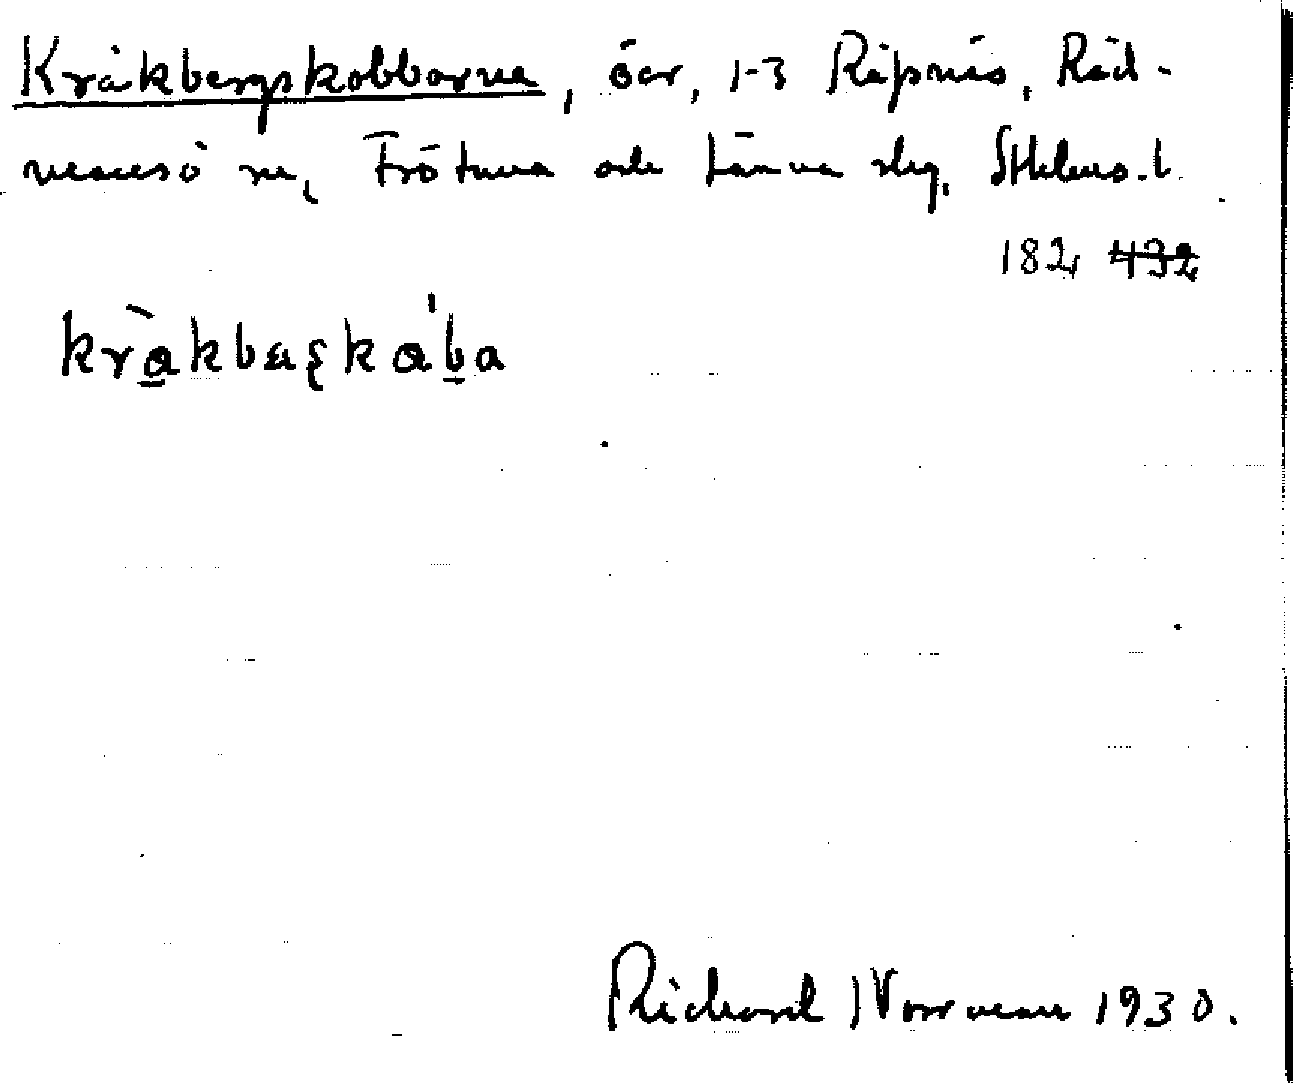 Kråkbergskobbarna, öar, 1-3 Räfsnäs, Råd-
mansö sn, Frötuna och Länna skg, Sthlms.l
182 432
kràkbaʂkába
Richard Norrman 1930.